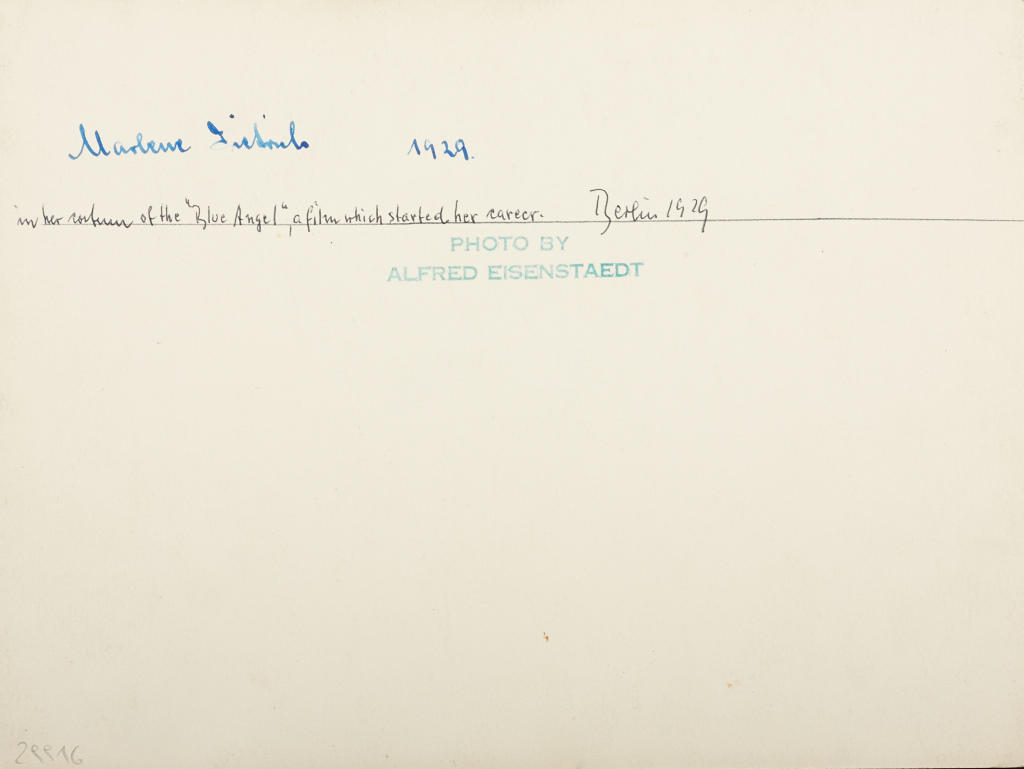 Marlene Dietrich 1929.
in her costum of the "Blue Angel", a film which started her career. Berlin 1929
PHOTO BY
ALFRED EISENSTAEDT
29916